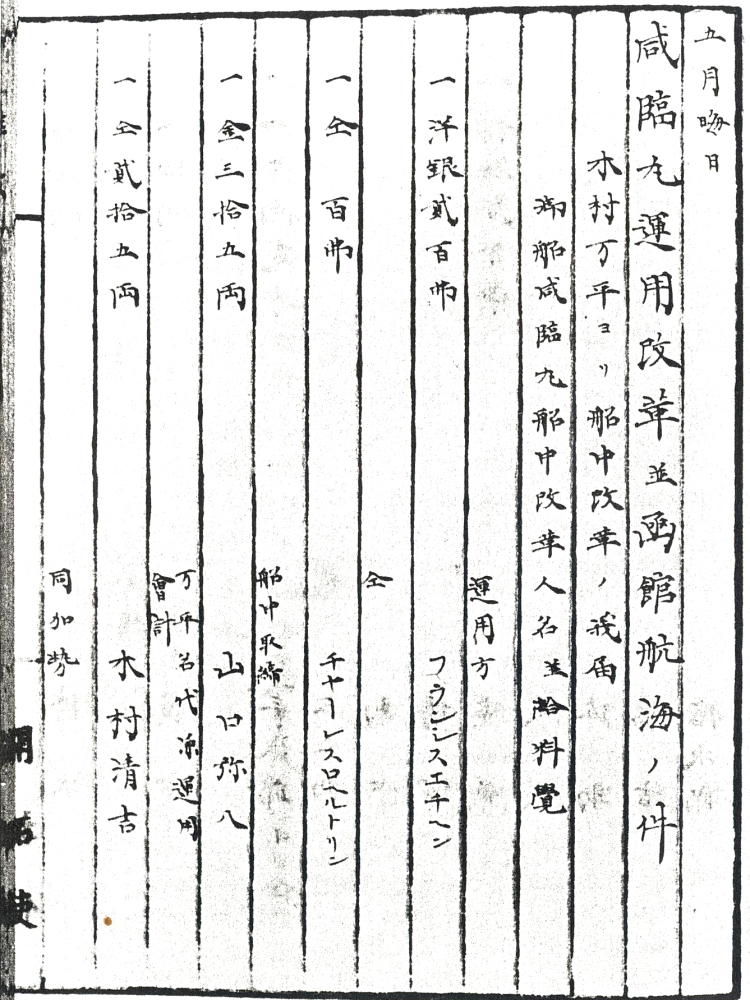 五月晦日
咸臨丸運用改革並函館航海ノ件
木村万平ヨリ船中改革ノ義届
御船咸臨丸船中改革人名並給料覚
運用方
一洋銀貳百弗 フランシスエチヘン
仝
一仝 百弗 チヤーレスロヘルトソン
船中取締
一金三拾五両 山口弥八
万平名代兼運用
會計
一仝貳拾五両 木村清吉
同加勢
開拓使